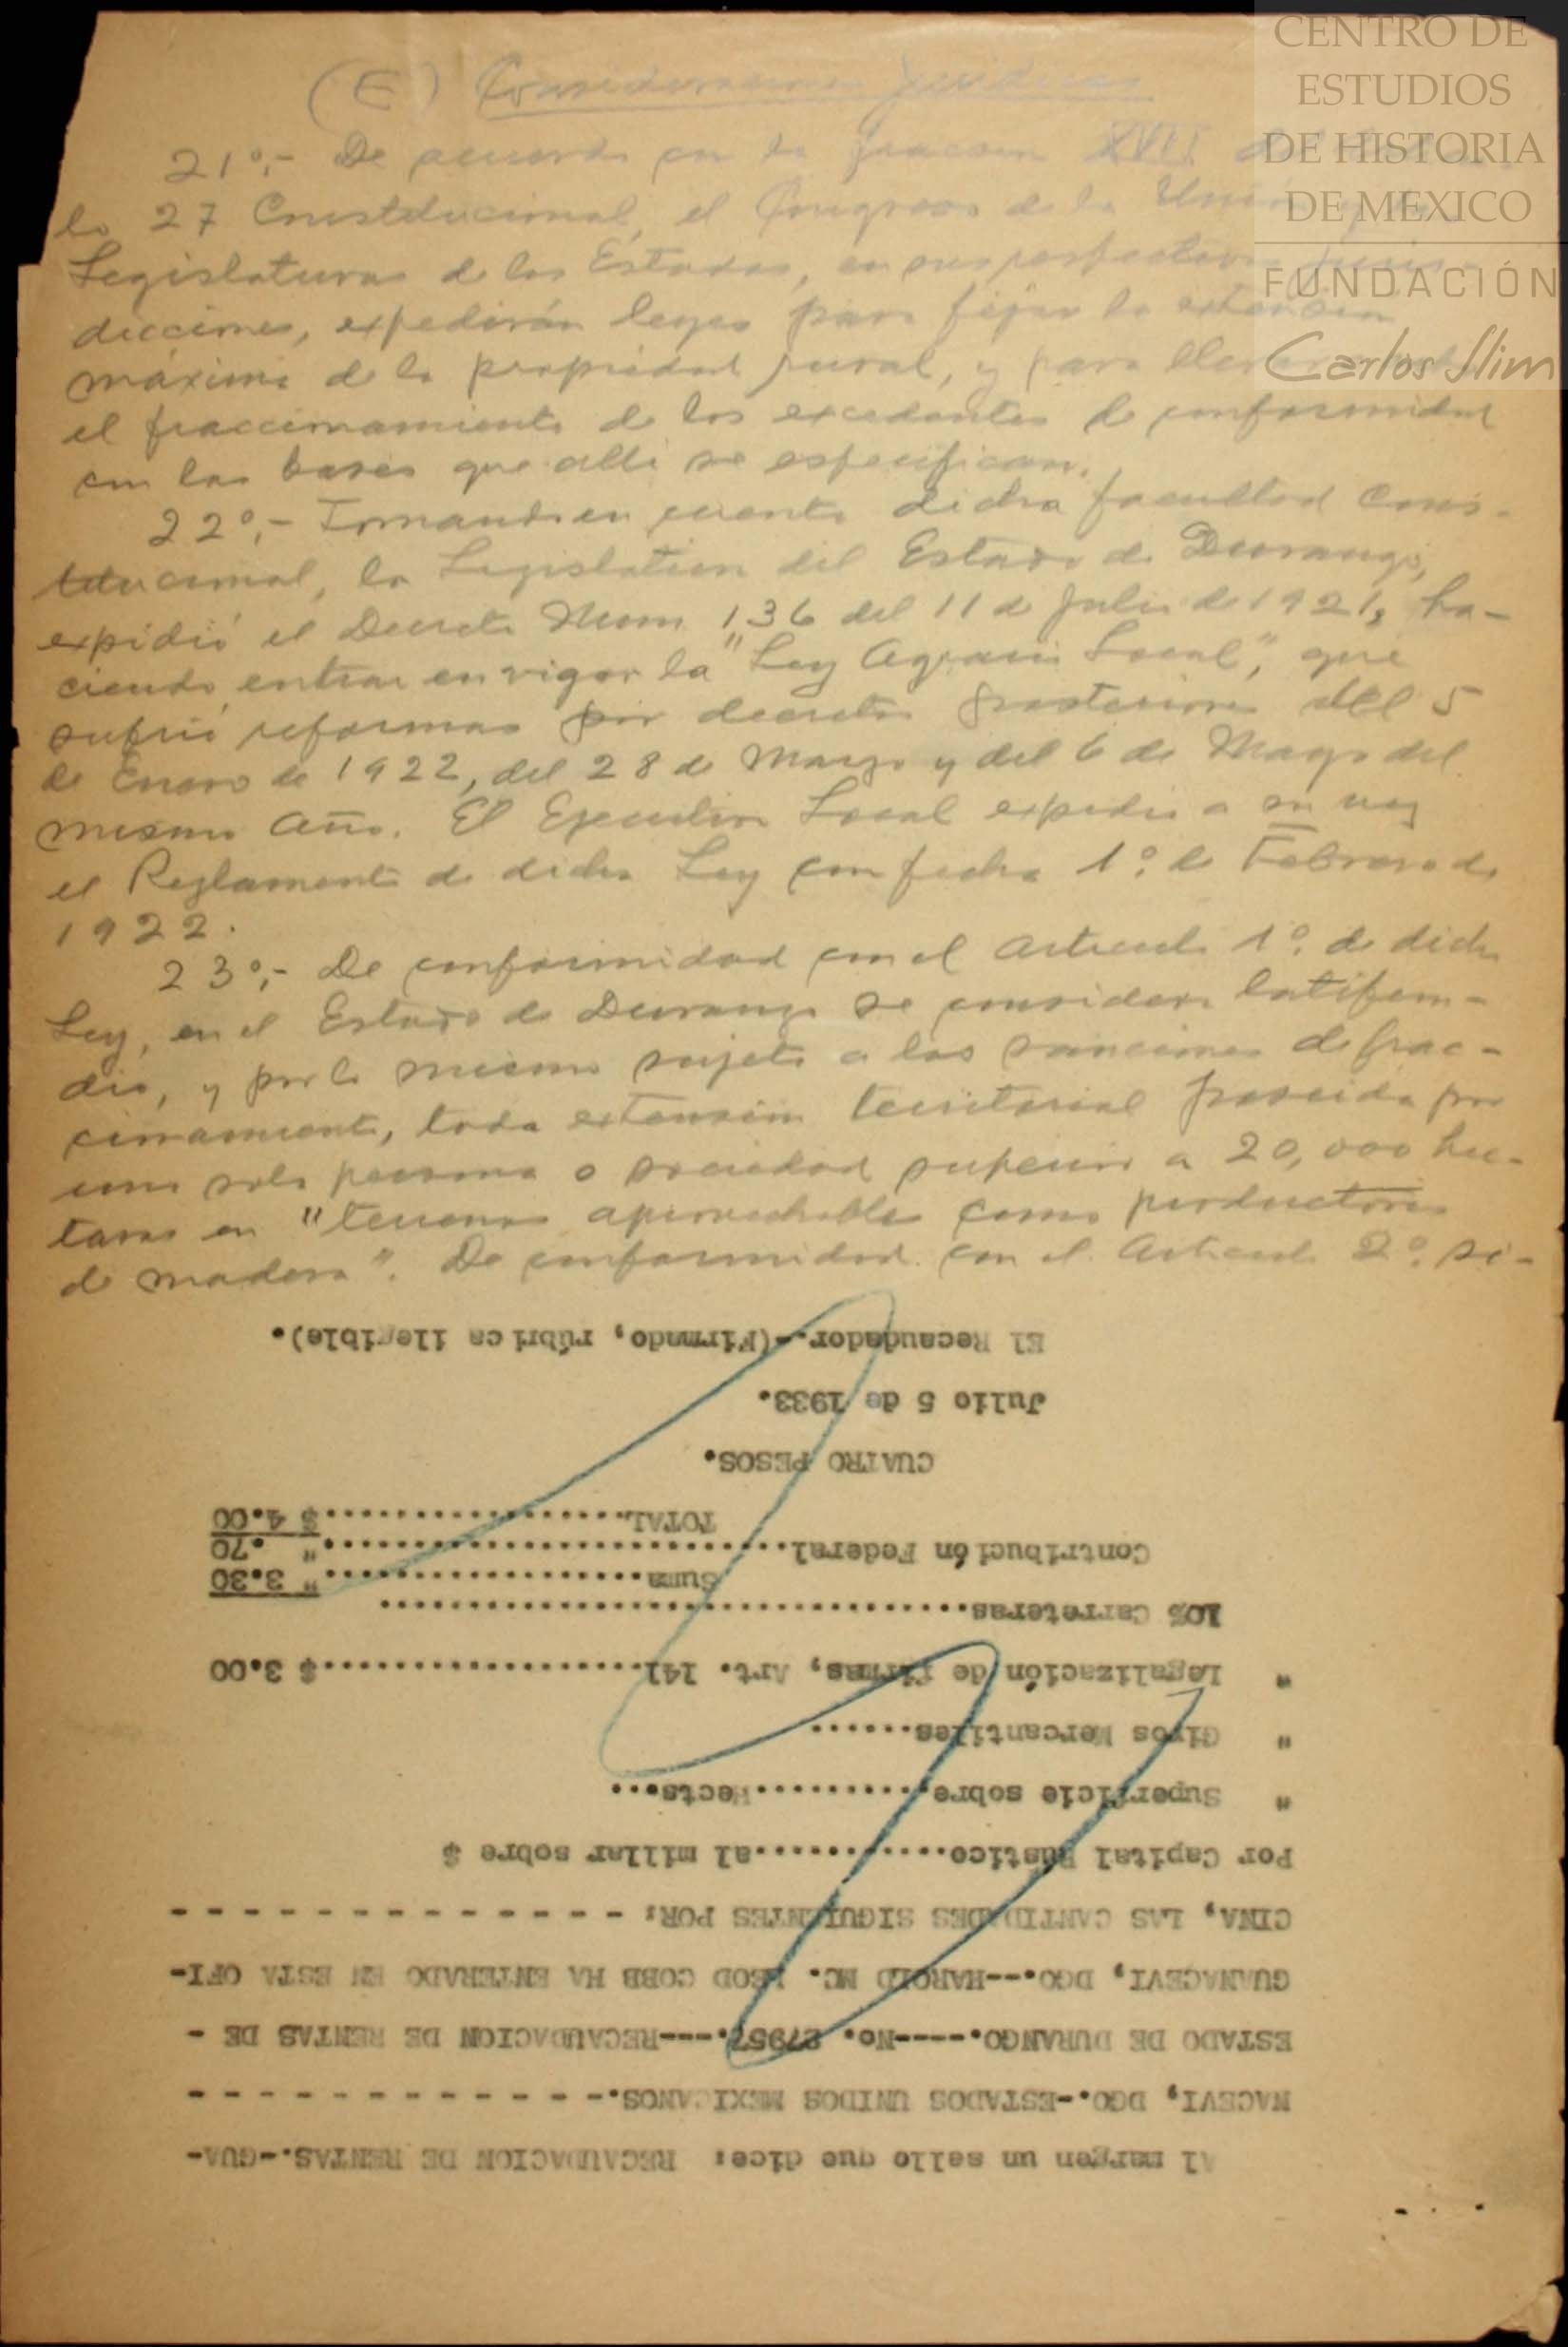 CENTRO DE
ESTUDIOS
DE HISTORIA
DE MEXICO
FUNDACIÓN
Carlos Slim
(E) Consideraciones Jurídicas
21º,- De acuerdo con la fracción XVII
lo 27 Constitucional, el Congreso de la Unión
Legislaturas de los Estados, en sus respectivas juris-
dicciones, expedirán leyes para fijar la extensión
máxima de la propiedad rural, y para llevar
el fraccionamiento de los excedentes de conformidad
con las bases que alli se especifican.
22º,- Tomando en cuenta dicha facultad Cons-
titucional, la Legislation del Estado de Durango,
expidió el Decreto Num 136 del 11 de Julio de 1921, ha-
ciendo entrar en vigor la "Ley Agraria Local", que
sufrió reformas por decretos posteriores del 5
de Enero de 1922, del 28 de Marzo y del 6 de Mayo del
mismo año. El Ejecutivo Local expidio a su vez
el Reglamento de dicha Ley con fecha 1º. de Febrero de
1922.
23º,- De conformidad con el Articulo 1º. de dicha
Ley, en el Estado de Durango se considera latifun-
dio, y por lo mismo sujeto a las sanciones de frac-
cionamiento, toda extensión territorial poseida por
una sola persona o sociedad superior a 20,000 hec-
taras en "terrenos aprovechables como productores
de madera". De conformidad con el Articulo 2º. si-
Al margen un sello que dice: RECAUDACION DE RENTAS.-GUA-
NACEVI, DGO.-ESTADOS UNIDOS MEXICANOS.- - - - - - - - - - - - -
ESTADO DE DURANGO.----No. 27957.---RECAUDACION DE RENTAS DE -
GUANACEVI, DGO.---HAROLD MC. LEOD COBB HA ENTERADO EN ESTA OFI-
CINA, LAS CANTIDADES SIGUIENTES POR: - - - - - - - - - - - - - -
Por Capital Rústico............al millar sobre $
" Superficie sobre...........Hects...
" Giros Mercantiles......
" Legalización de firmas, Art. 141...................$ 3.00
10% Carreteras.................................
Suma..................." 3.30
Contribución Federal..........................." .70
TOTAL..................$ 4.00
CUATRO PESOS.
Julio 5 de 1933.
El Recaudador.-(Firmado, rúbrica ilegible).